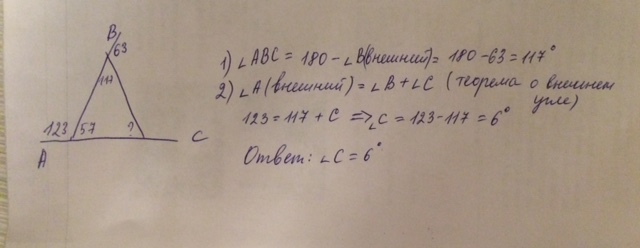 B
63
117
123 57 ?
A
C
1) ∠ABC = 180 - ∠B(внешний) = 180 - 63 = 117°
2) ∠A(внешний) = ∠B + ∠C (теорема о внешнем
угле)
123 = 117 + C ⇒ ∠C = 123 - 117 = 6°
Ответ: ∠C = 6°